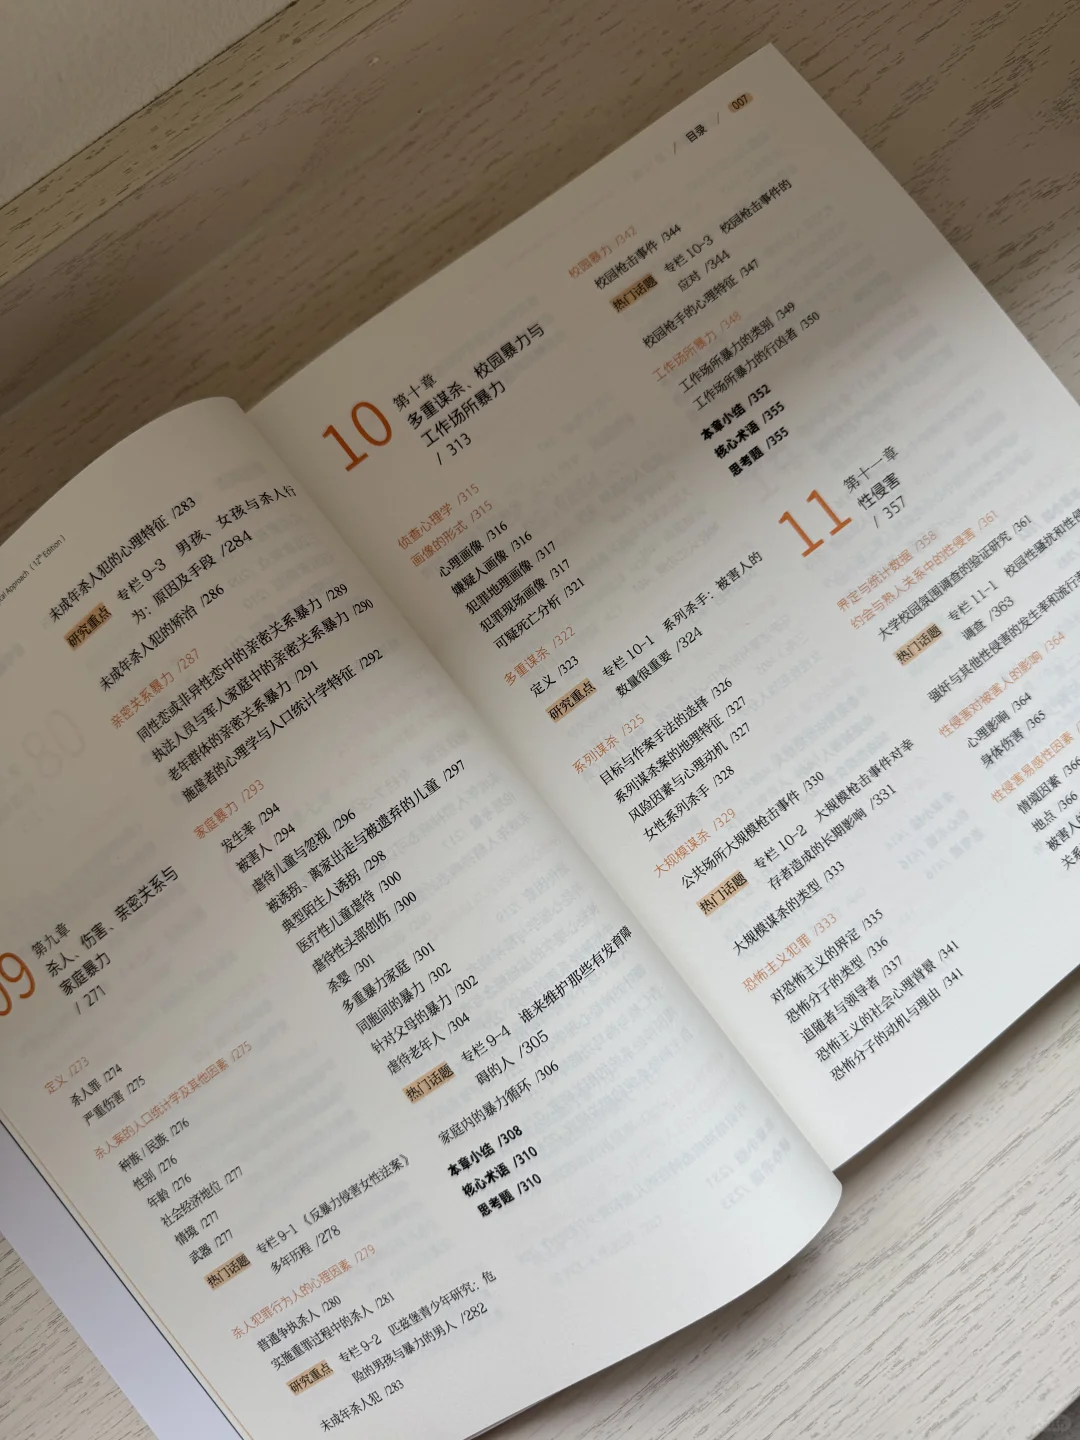 Approach ( 12th Edition )
09
第九章
杀人、伤害、亲密关系与
家庭暴力
/ 271
定义 /273
杀人罪 /274
严重伤害 /275
杀人案的人口统计学及其他因素 /275
种族 / 民族 /276
性别 /276
年龄 /276
社会经济地位 /277
情境 /277
武器 /277
热门话题 专栏 9-1 《反暴力侵害女性法案》
多年历程 /278
杀人犯罪行为人的心理因素 /279
普通争执杀人 /280
实施重罪过程中的杀人 /281
研究重点 专栏 9-2 匹兹堡青少年研究：危
险的男孩与暴力的男人 /282
未成年杀人犯 /283
未成年杀人犯的心理特征 /283
研究重点 专栏 9-3 男孩、女孩与杀人行
为：原因及手段 /284
未成年杀人犯的矫治 /286
亲密关系暴力 /287
同性恋或非异性恋中的亲密关系暴力 /289
执法人员与军人家庭中的亲密关系暴力 /290
老年群体的亲密关系暴力 /291
施虐者的心理学与人口统计学特征 /292
家庭暴力 /293
发生率 /294
被害人 /294
虐待儿童与忽视 /296
被诱拐、离家出走与被遗弃的儿童 /297
典型陌生人诱拐 /298
医疗性儿童虐待 /300
虐待性头部创伤 /300
杀婴 /301
多重暴力家庭 /301
同胞间的暴力 /302
针对父母的暴力 /302
虐待老年人 /304
热门话题 专栏 9-4 谁来维护那些有发育障
碍的人 /305
家庭内的暴力循环 /306
本章小结 /308
核心术语 /310
思考题 /310
/ 目录 / 007
10
第十章
多重谋杀、校园暴力与
工作场所暴力
/ 313
侦查心理学 /315
画像的形式 /315
心理画像 /316
嫌疑人画像 /316
犯罪地理画像 /317
犯罪现场画像 /317
可疑死亡分析 /321
多重谋杀 /322
定义 /323
研究重点 专栏 10-1 系列杀手：被害人的
数量很重要 /324
系列谋杀 /325
目标与作案手法的选择 /326
系列谋杀案的地理特征 /327
风险因素与心理动机 /327
女性系列杀手 /328
大规模谋杀 /329
公共场所大规模枪击事件 /330
热门话题 专栏 10-2 大规模枪击事件对幸
存者造成的长期影响 /331
大规模谋杀的类型 /333
恐怖主义犯罪 /333
对恐怖主义的界定 /335
恐怖分子的类型 /336
追随者与领导者 /337
恐怖主义的社会心理背景 /341
恐怖分子的动机与理由 /341
校园暴力 /342
校园枪击事件 /344
热门话题 专栏 10-3 校园枪击事件的
应对 /344
校园枪手的心理特征 /347
工作场所暴力 /348
工作场所暴力的类别 /349
工作场所暴力的行凶者 /350
本章小结 /352
核心术语 /355
思考题 /355
11
第十一章
性侵害
/ 357
界定与统计数据 /358
约会与熟人关系中的性侵害 /361
大学校园氛围调查的验证研究 /361
热门话题 专栏 11-1 校园性骚扰和性侵
调查 /363
强奸与其他性侵害的发生率和流行率
性侵害对被害人的影响 /364
心理影响 /364
身体伤害 /365
性侵害易感性因素
情境因素 /366
地点 /366
被害人的
关系